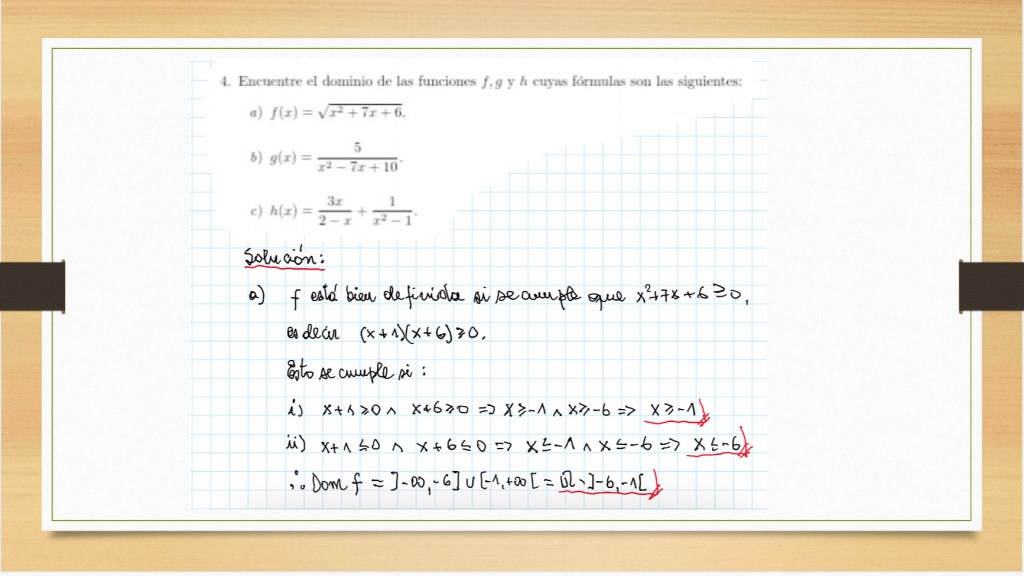 4. Encuentre el dominio de las funciones f, g y h cuyas fórmulas son las siguientes:
a) f(x) = √(x² + 7x + 6).
b) g(x) = 5/(x² − 7x + 10).
c) h(x) = 3x/(2 − x) + 1/(x² − 1).
Solución:
a) f está bien definida si se cumple que x²+7x+6≥0,
es decir (x+1)(x+6)≥0.
Esto se cumple si:
i) x+1≥0 ∧ x+6≥0 => x≥-1 ∧ x≥-6 => x≥-1
ii) x+1≤0 ∧ x+6≤0 => x≤-1 ∧ x≤-6 => x≤-6
∴ Dom f = ]-∞,-6] ∪ [-1,+∞[ = ℝ \ ]-6,-1[